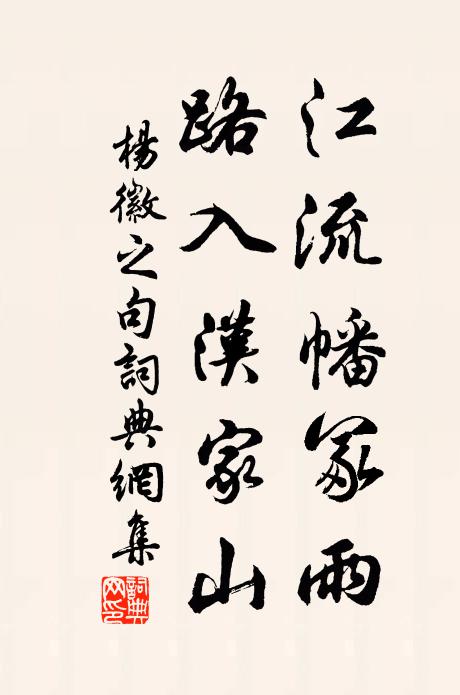 江流幡冢雨
路入漢家山
楊徽之句詞典網集
詞典網印